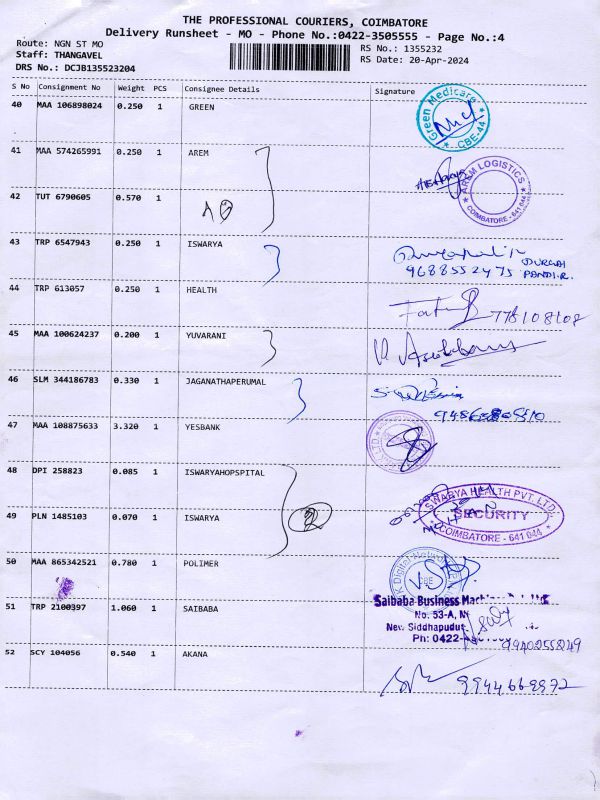 THE PROFESSIONAL COURIERS, COIMBATORE
Delivery Runsheet - MO - Phone No.:0422-3505555 - Page No.:4
Route: NGN ST MO
RS No.: 1355232
Staff: THANGAVEL
RS Date: 20-Apr-2024
DRS No.: DCJB135523204
S No Consignment No Weight PCS Consignee Details Signature
40 MAA 106898024 0.250 1 GREEN
Green Medicare
CBE-44
41 MAA 574265991 0.250 1 AREM
AREM LOGISTICS
COIMBATORE - 641 044
42 TUT 6790605 0.570 1
43 TRP 6547943 0.250 1 ISWARYA
DURGAI
9688552475 PANDI.R.
44 TRP 613057 0.250 1 HEALTH
45 MAA 100624237 0.200 1 YUVARANI
46 SLM 344186783 0.330 1 JAGANATHAPERUMAL
47 MAA 108875633 3.320 1 YESBANK
48 DPI 258823 0.085 1 ISWARYAHOPSPITAL
2
SWARYA HEALTH PVT. LTD.
SECURITY
COIMBATORE - 641 044
49 PLN 1485103 0.070 1 ISWARYA
50 MAA 865342521 0.780 1 POLIMER
K Digital Network
CBE
51 TRP 2100397 1.060 1 SAIBABA
Saibaba Business
No. 53-A,
New Siddhapudur
Ph: 0422-
52 SCY 104056 0.540 1 AKANA